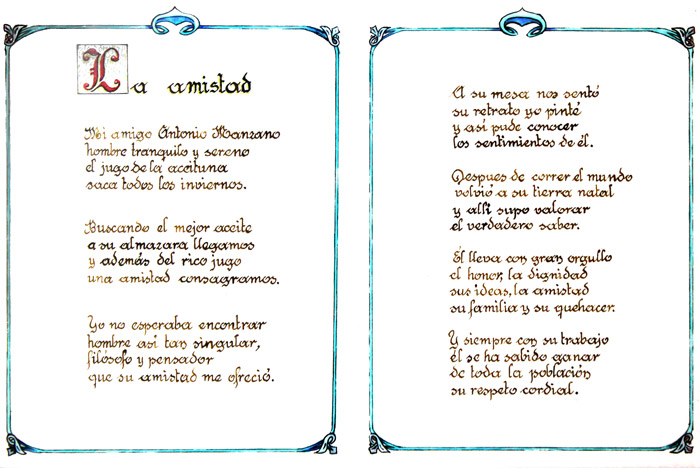 La amistad
Mi amigo Antonio Manzano
hombre tranquilo y sereno
el jugo de la aceituna
saca todos los inviernos.
Buscando el mejor aceite
a su almazara llegamos
y además del rico jugo
una amistad consagramos.
Yo no esperaba encontrar
hombre asi tan singular,
filósofo y pensador
que su amistad me ofreció.
A su mesa nos sentó
su retrato yo pinté
y así pude conocer
los sentimientos de él.
Despues de correr el mundo
volvió a su tierra natal
y alli supo valorar
el verdadero saber.
Él lleva con gran orgullo
el honor, la dignidad
sus ideas, la amistad
su familia y su quehacer.
Y siempre con su trabajo
Él se ha sabido ganar
de toda la población
su respeto cordial.